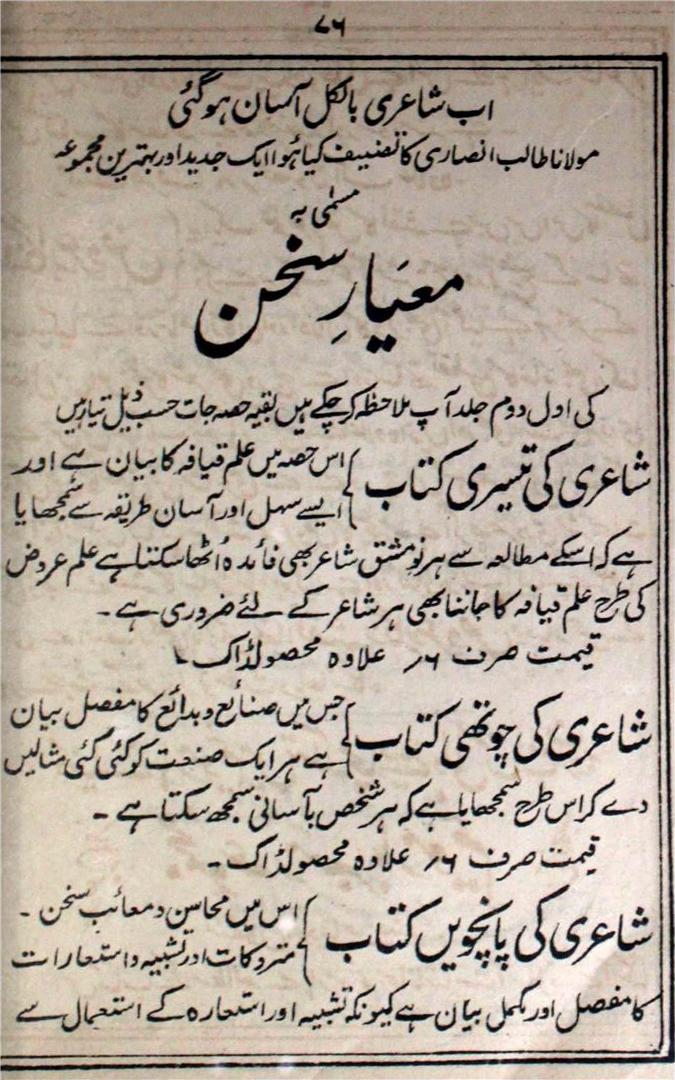 ۷۶
اب شاعری بالکل آسان ہوگئی
مولانا طالب انصاری کا تصنیف کیا ہوا ایک جدید اور بہترین مجموعہ
مسمٰی بہ
معیارِ سخن
کی اول دوم جلد آپ ملاحظہ کرچکے ہیں بقیہ حصہ جات حسب ذیل تیار ہیں
شاعری کی تیسری کتاب } اس حصہ میں علم قیافہ کا بیان ہے اور
ایسے سہل اور آسان طریقہ سے سمجھایا
ہے کہ اسکے مطالعہ سے ہر نو مشق شاعر بھی فائدہ اُٹھا سکتا ہے علم عروض
کی طرح علم قیافہ کا جاننا بھی ہر شاعر کے لئے ضروری ہے ۔
قیمت صرف ۶؍ علاوہ محصولڈاک ۔
شاعری کی چوتھی کتاب } جس میں صنائع و بدائع کا مفصل بیان
ہے ہر ایک صنعت کو کئی کئی مثالیں
دے کر اس طرح سمجھایا ہے کہ ہر شخص بآسانی سمجھ سکتا ہے ۔
قیمت صرف ۶؍ علاوہ محصولڈاک ۔
شاعری کی پانچویں کتاب } اس میں محاسن و معائب سخن ۔
متروکات اور تشبیہ و استعارات
کا مفصل اور مکمل بیان ہے کیونکہ تشبیہ اور استعارہ کے استعمال سے